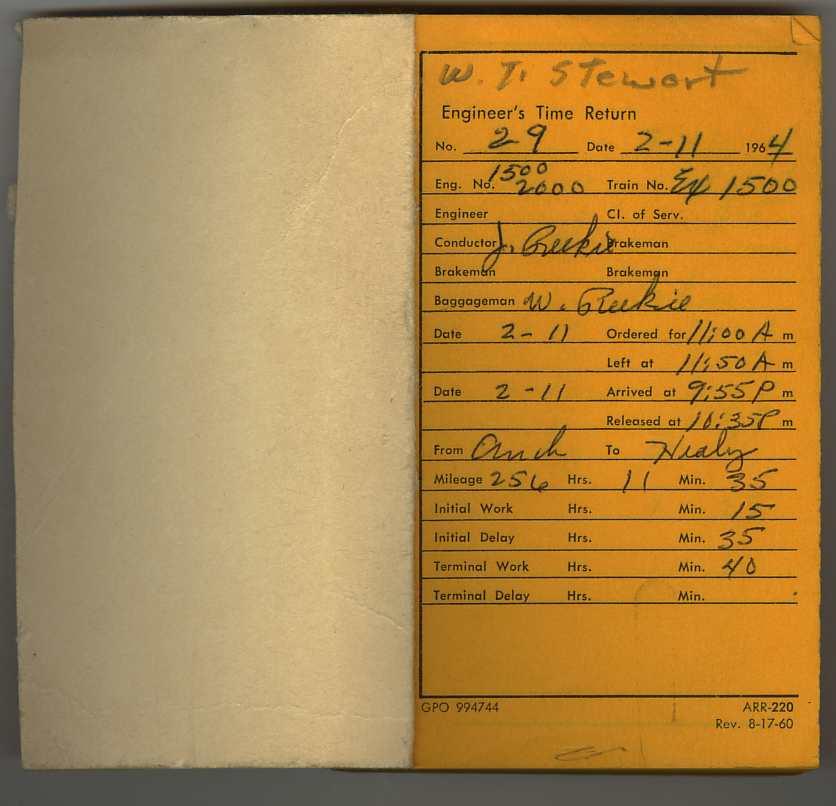 W. T. Stewart
Engineer's Time Return
No. 29 Date 2-11 1964
1500
Eng. No. 2000 Train No. Ex 1500
Engineer Cl. of Serv.
Conductor J. Reekie Brakeman
Brakeman Brakeman
Baggageman W. Reekie
Date 2-11 Ordered for 11:00 A m
Left at 11:50 A m
Date 2-11 Arrived at 9:55 P m
Released at 10:35 P m
From Anch To Healy
Mileage 256 Hrs. 11 Min. 35
Initial Work Hrs. Min. 15
Initial Delay Hrs. Min. 35
Terminal Work Hrs. Min. 40
Terminal Delay Hrs. Min.
GPO 994744 ARR-220
Rev. 8-17-60